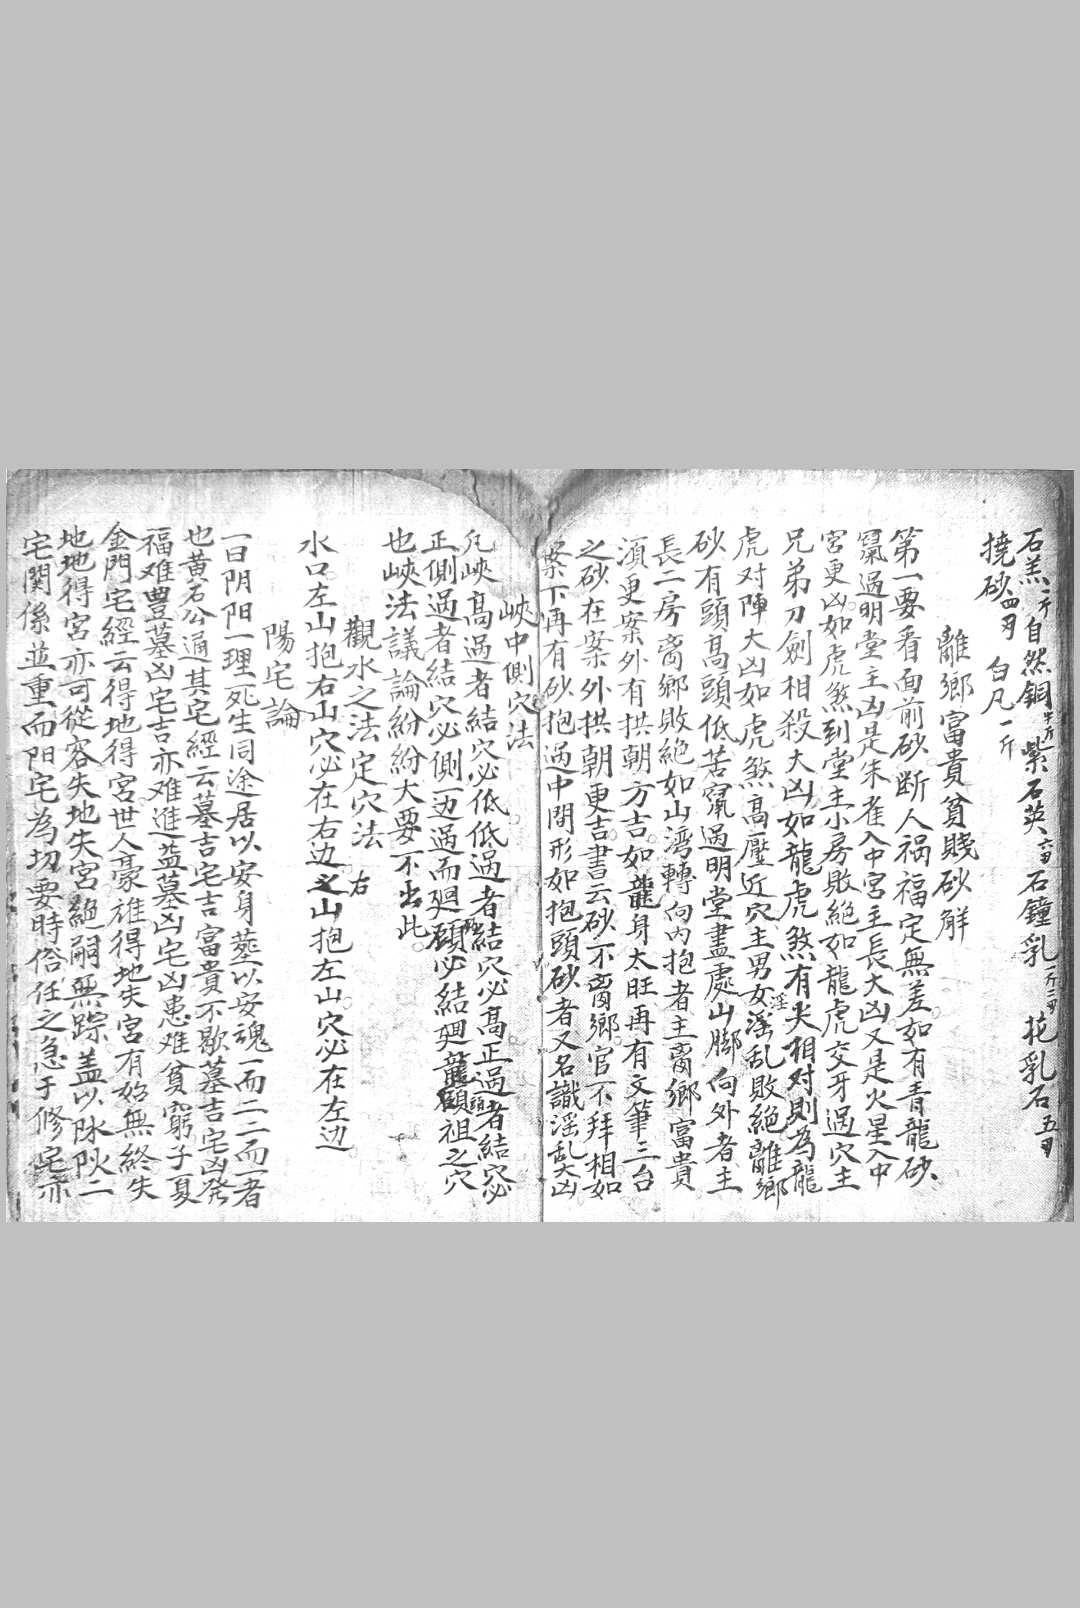 石羔一斤自然銅半斤紫石英六刄石鐘乳一斤二刄花乳石五刄
撓砂四刄 白凡一斤
離鄉富貴貧賤砂解
第一要看面前砂断人祸福定無差如有青龍砂
竄過明堂主凶是朱雀入中宮主長大凶又是火星入中
宮更凶如虎煞到堂主小房敗絕如龍虎交牙過穴主
兄弟刀劍相殺大凶如龍虎煞有尖相对則為龍
虎对陣大凶如虎煞高壓近穴主男女淫乱敗絕離鄉
砂有頭高頭低苦竄過明堂盡處山脚向外者主
長二房离鄉敗絕如山湾轉向内抱者主离鄉富貴
湏更案外有拱朝方吉如龍身太旺再有文筆三台
之砂在案外拱朝更吉書云砂不离鄉官不拜相如
案下再有砂抱過中間形如抱頭砂者又名識淫乱大凶
峽中側穴法
凢峽高過者結穴必低低過者結穴必高正過者結穴必
正側過者結穴必側边過而廻頋必結廻龍頋祖之穴
也峽法議論紛紛大要不出此
觀水之法定穴法
水口左山抱右山穴必在右边之山抱左山穴必在左边
右
陽宅論
一曰阴阳一理死生同途居以安身塟以安魂一而二二而一者
也黄石公通其宅經云墓吉宅吉富貴不歇墓吉宅凶発
福难豊墓凶宅吉亦难進益墓凶宅凶患难貧窮子夏
金門宅經云得地得宮世人豪雄得地失宮有始無終失
地地得宮亦可從容失地失宮絕嗣無踪盖以阴二
宅関係並重而阳宅為切要時俗任之急于修宅亦